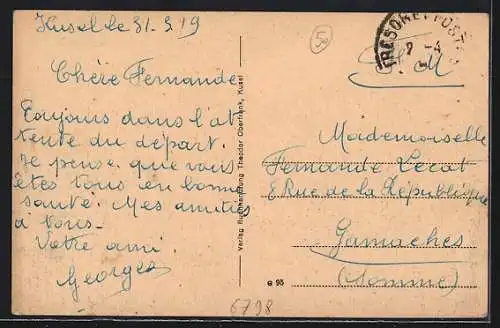 Kusel le 31.3.19
50
TRESOR ET POSTES
2 - 4
F M
Chère Fernande
Toujours dans l'at
tente du départ.
Je pense que vous
êtes tous en bonne
santé. Mes amitiés
à tous.
Votre ami
Georges
Verlag Buchhandlung Theodor Oberfrank, Kusel
Mademoiselle
Fernande Lecat
8 Rue de la République
Gamaches
(Somme)
e 95
6798